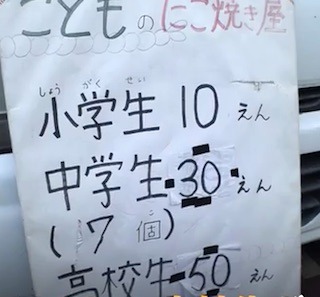 こどものたこ焼き屋
しょうがくせい
小学生 10 えん
中学生 30 えん
(17個)
高校生 50 えん